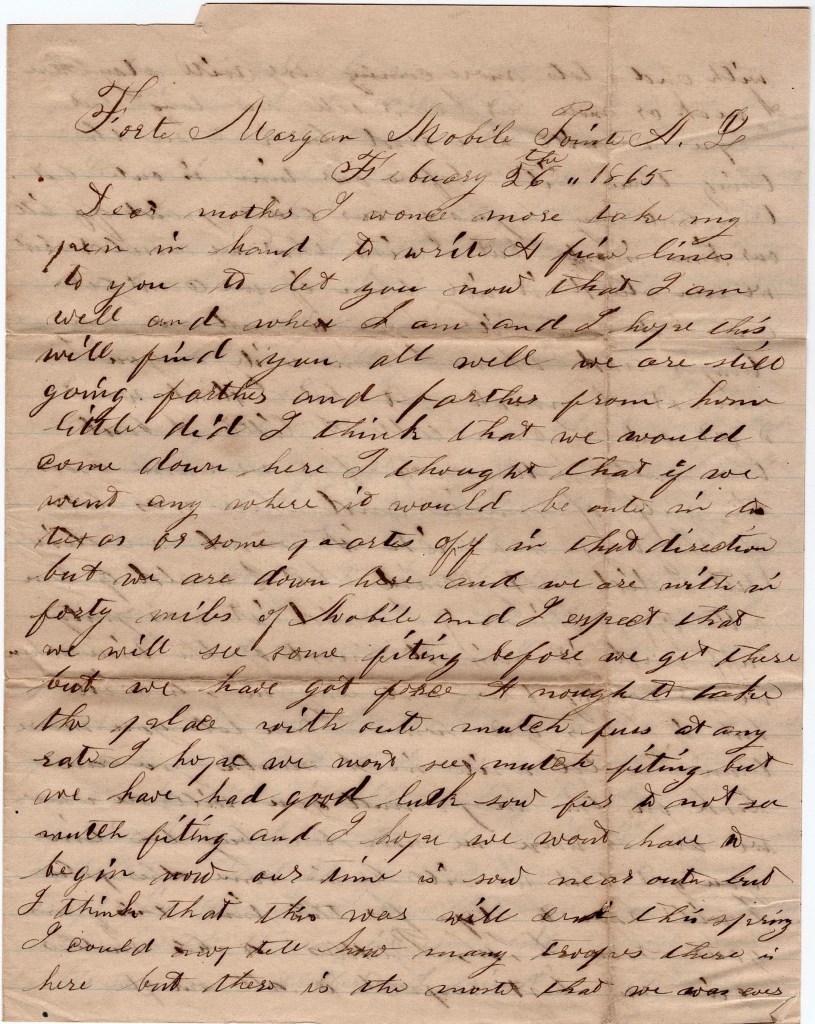 Forte Morgan Mobile Pointe A. L
Febuary 26the " 1865
Dear mother I wonce more take my
pen in hand to write A few lines
to you to let you now that I am
well and where I am and I hope this
will find you all well we are still
going farther and farther from home
little did I think that we would
come down here I thought that if we
went any where it would be oute in to
texas or some parte off in that direction
but we are down here and we are with in
forty miles of Mobile and I expect that
we will see some fiting before we get there
but we have got force A nough to take
the place with oute mutch fuss at any
rate I hope we wont see mutch fiting but
we have had good luck sow fur to not see
mutch fiting and I hope we wont have to
begin now our time is sow near oute but
I think that this war will end this spring
I could not tell how many troops there is
here but there is the moste that we was ever